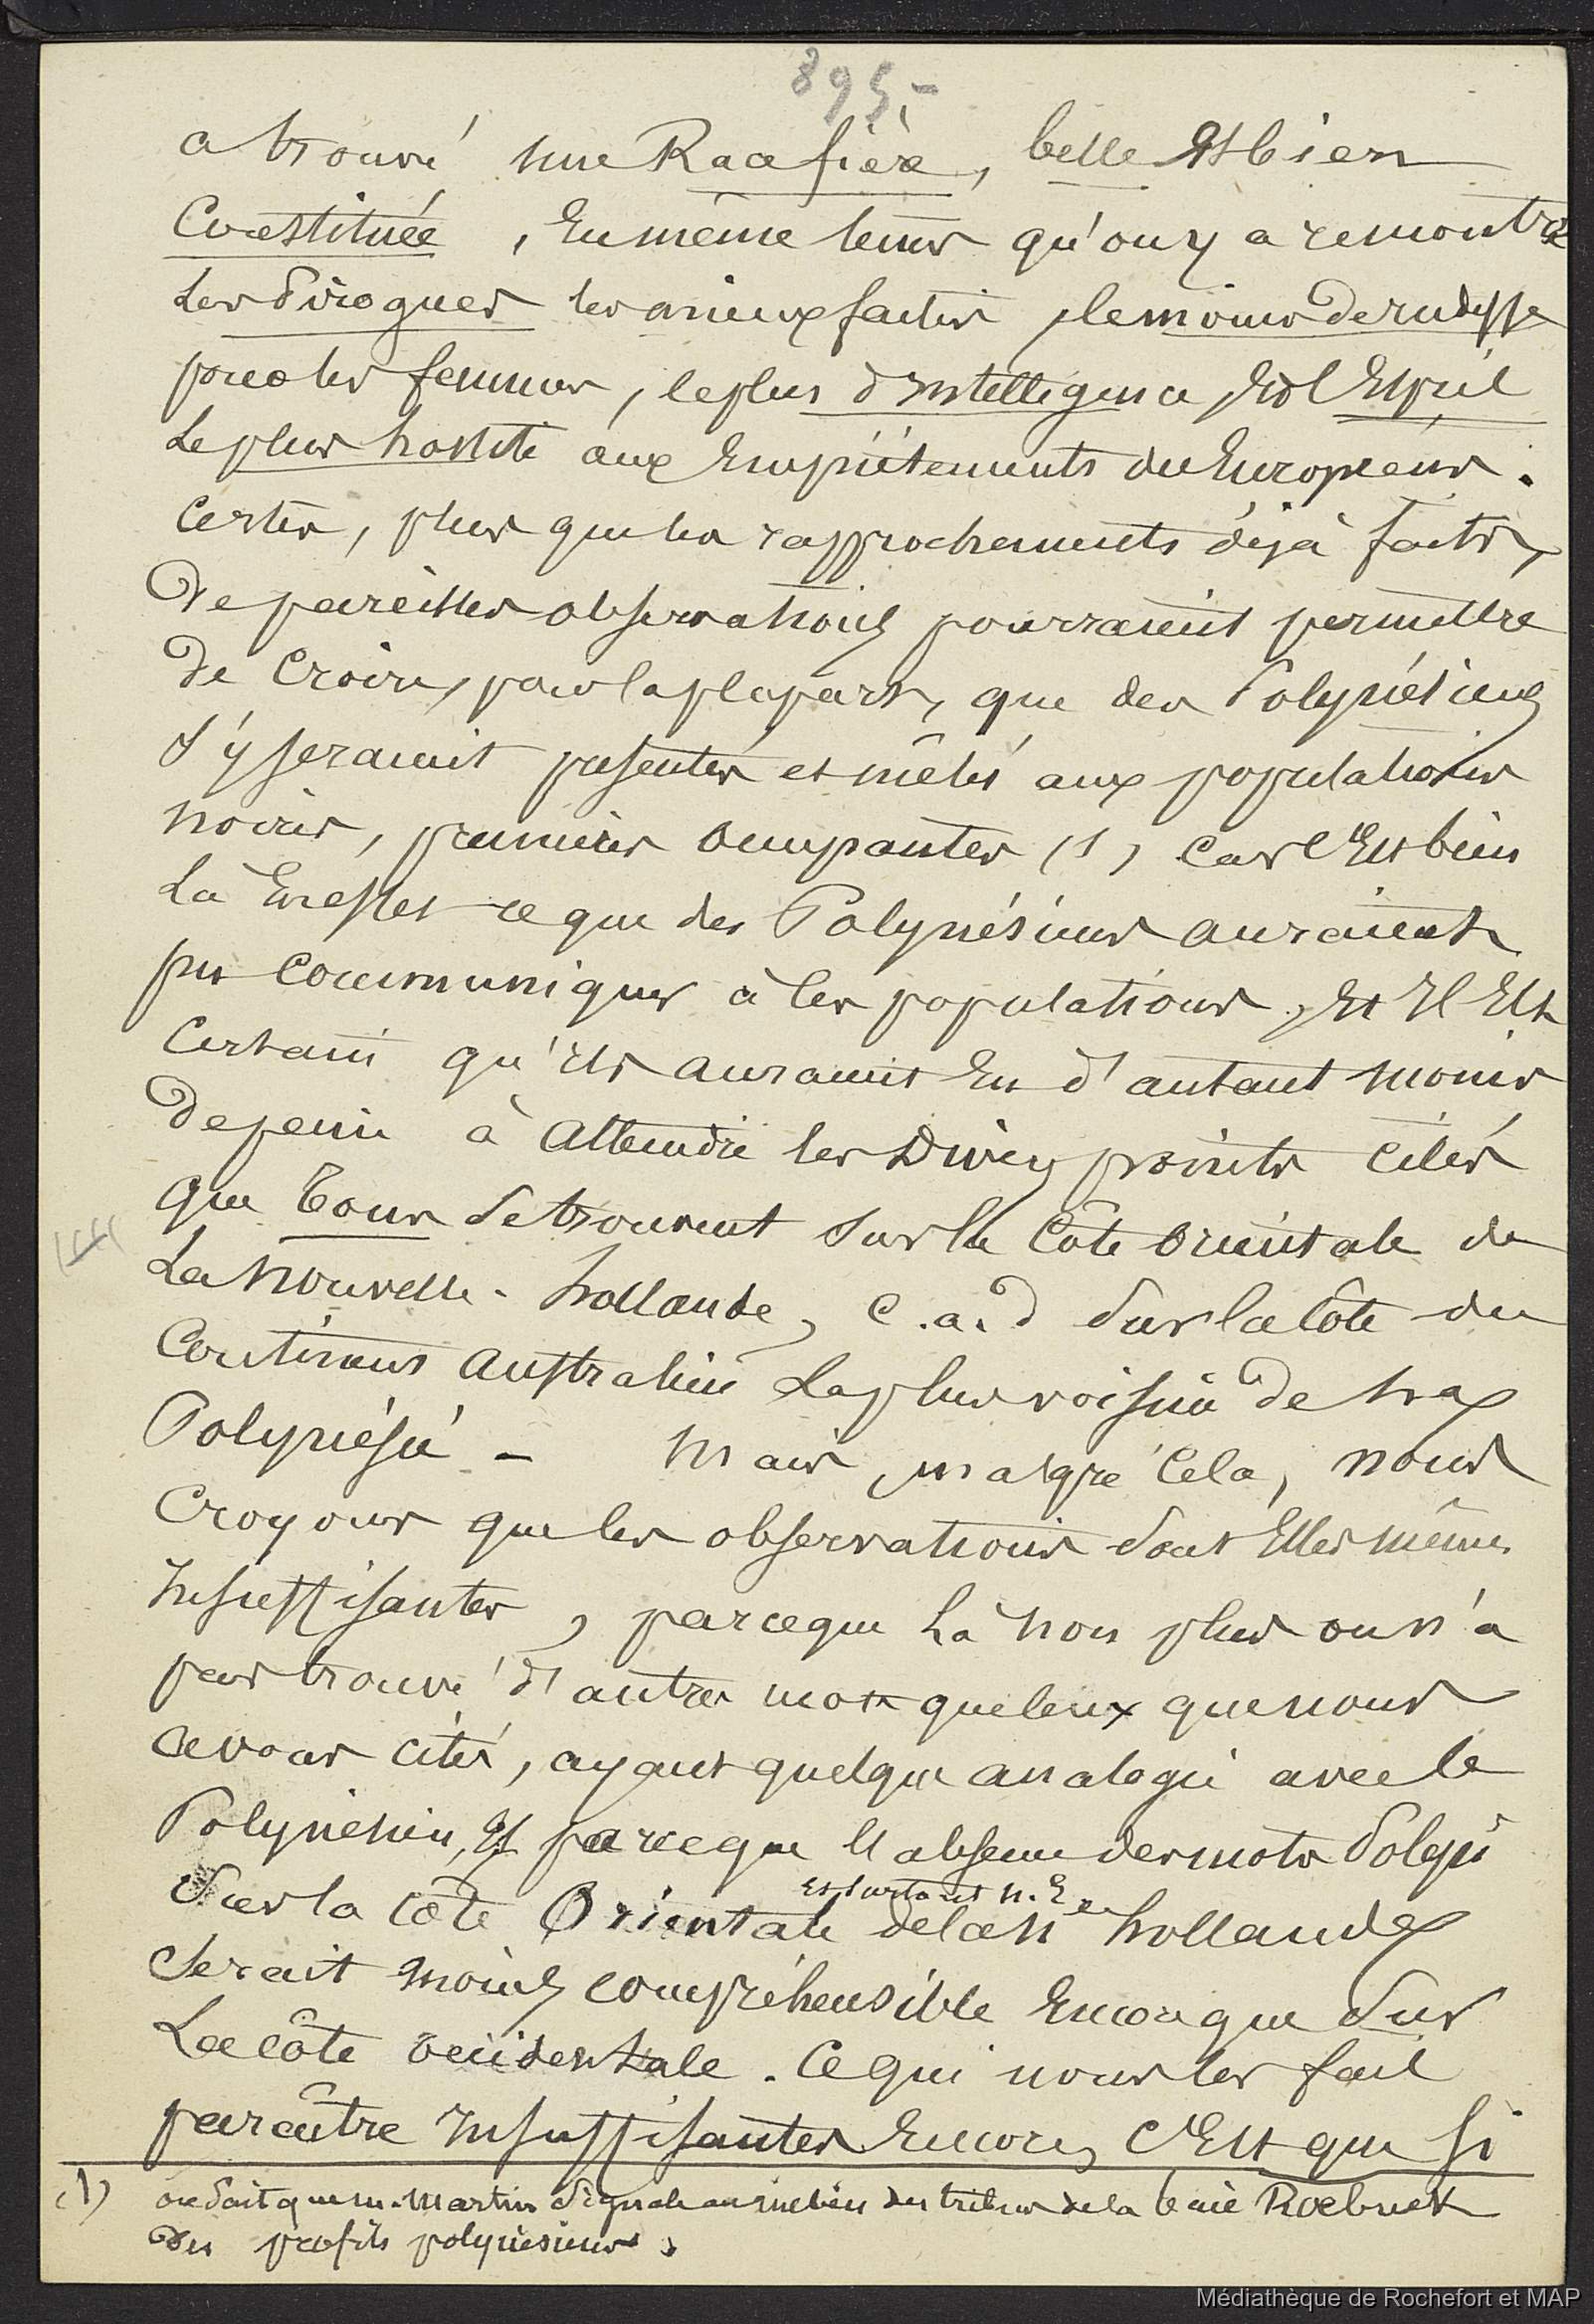 895.-
a trouvé une Race fière, belle Et bien
Constituée, En même tems qu'on y a remontré
Les Pirogues les mieux faites, le moins de rudesse
pour les femmes, le plus d'Intelligence, Et l'Esprit
Le plus hostile aux Empiètements des Européens.
Certes, plus que les rapprochements déjà faits,
De pareilles observations pourraient permettre
De Croire, pour la plupart, que des Polynésiens
S'y seraient présentés et mêlés aux populations
noires, premières occupantes (1), Car C'Est bien
Là En effet ce que des Polynésiens auraient
pu Communiquer à les populations, Et Il Est
Certain qu'ils auraient Eu d'autant moins
De peine à Atteindre les Divers points Cités
que Tous Se trouvent Sur la Côte Orientale de
La Nouvelle-hollande, C.a.d Sur la Côte du
Continent Australien La plus voisine De la
Polynésie - Mais, malgré Cela, nous
Croyons que les observations Sont Elles mêmes
Insuffisantes, parceque Là non plus on n'a
pas trouvé d'autres mots que ceux que nous
avons cités, ayant quelque analogie avec le
Polynésien, Et parceque l'absence des mots Polyn
Et surtout N.E
Sur la Côte Orientale de la Nlle hollande
Serait Moins Compréhensible Encore que Sur
La Côte Occidentale. Ce qui nous les fait
paraître Insuffisantes Encore, C'Est que Si
(1) on Sait que M. Martin Signale au milieu des tribus de la baie Roebuck
Des profils polynésiens.
Médiathèque de Rochefort et MAP